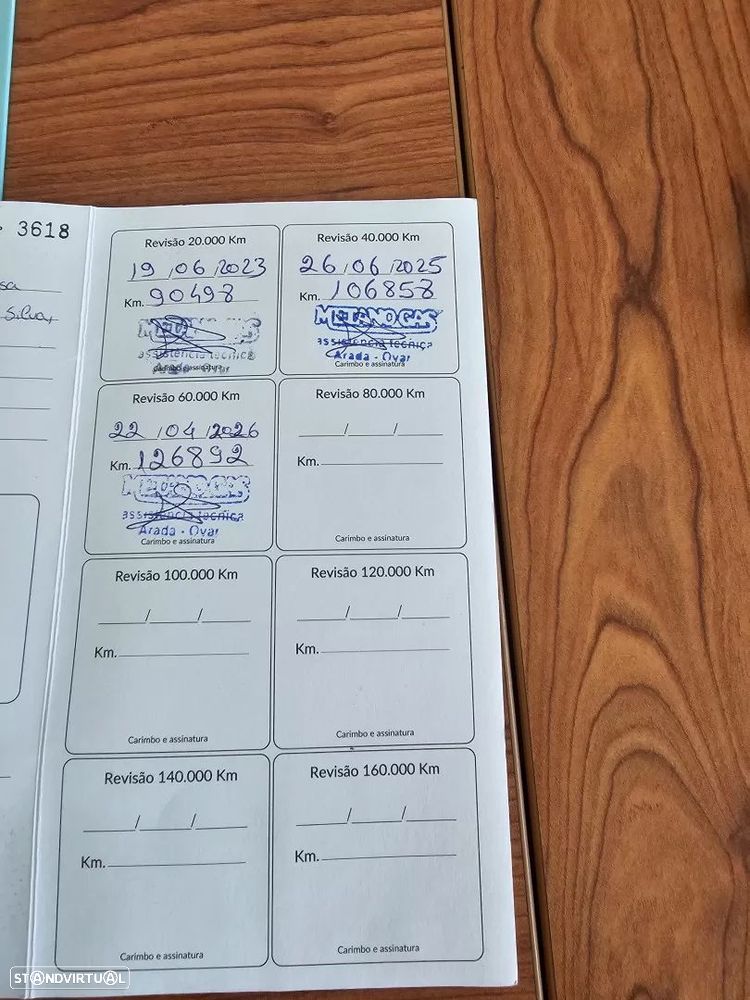 3618
Silva,
Revisão 20.000 Km
19/06/2023
Km. 90498
assistencia tecnica
Carimbo e assinatura
Revisão 40.000 Km
26/06/2025
Km. 106858
METANOGAS
assistencia tecnica
Arada - Ovar
Carimbo e assinatura
Revisão 60.000 Km
22/04/2026
Km. 126892
METANOGAS
assistencia tecnica
Arada - Ovar
Carimbo e assinatura
Revisão 80.000 Km
Km.
Carimbo e assinatura
Revisão 100.000 Km
Km.
Carimbo e assinatura
Revisão 120.000 Km
Km.
Carimbo e assinatura
Revisão 140.000 Km
Km.
Carimbo e assinatura
Revisão 160.000 Km
Km.
Carimbo e assinatura
STANDVIRTUAL